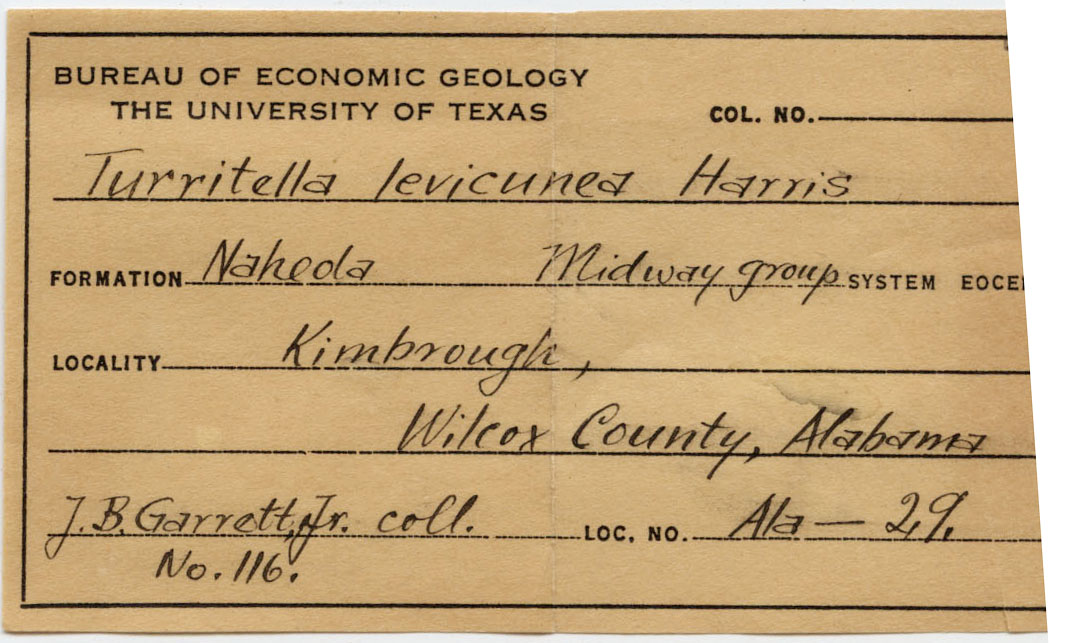 BUREAU OF ECONOMIC GEOLOGY
THE UNIVERSITY OF TEXAS COL. NO.
Turritella levicunea Harris
FORMATION Naheola Midway group SYSTEM EOCE
LOCALITY Kimbrough,
Wilcox County, Alabama
J.B. Garrett, Jr. coll. LOC. NO. Ala — 29.
No. 116.